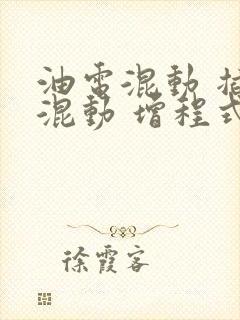 油電混動
混動 增程式
徐霞客